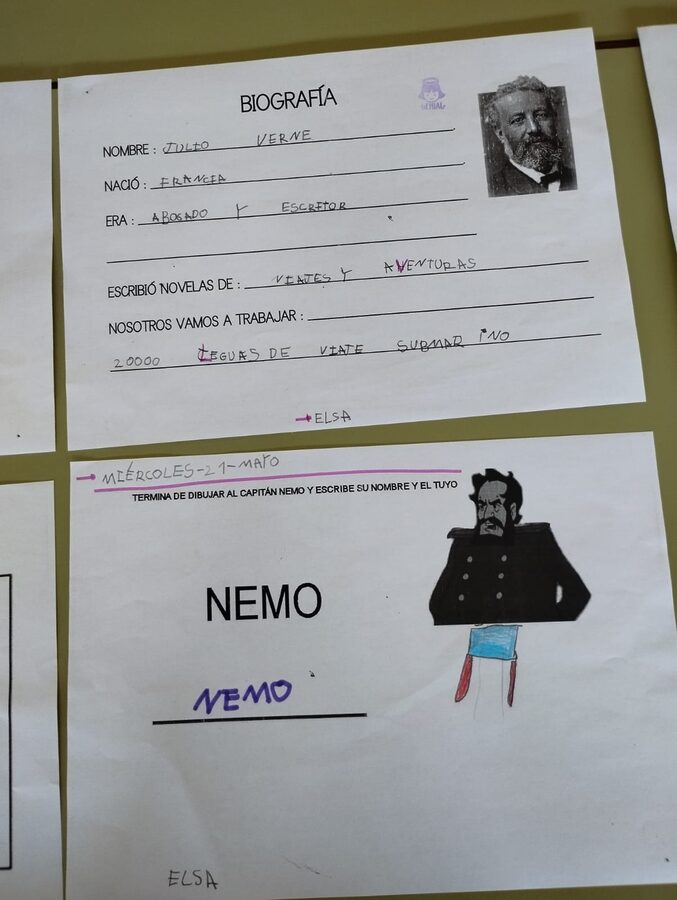 BIOGRAFÍA
GENIAL
NOMBRE : JULIO VERNE
NACIÓ : FRANCIA
ERA : ABOGADO Y ESCRITOR
ESCRIBIÓ NOVELAS DE : VIAJES Y AVENTURAS
NOSOTROS VAMOS A TRABAJAR :
20000 LEGUAS DE VIAJE SUBMARINO
ELSA
MIÉRCOLES-21-MAYO
TERMINA DE DIBUJAR AL CAPITÁN NEMO Y ESCRIBE SU NOMBRE Y EL TUYO
NEMO
NEMO
ELSA